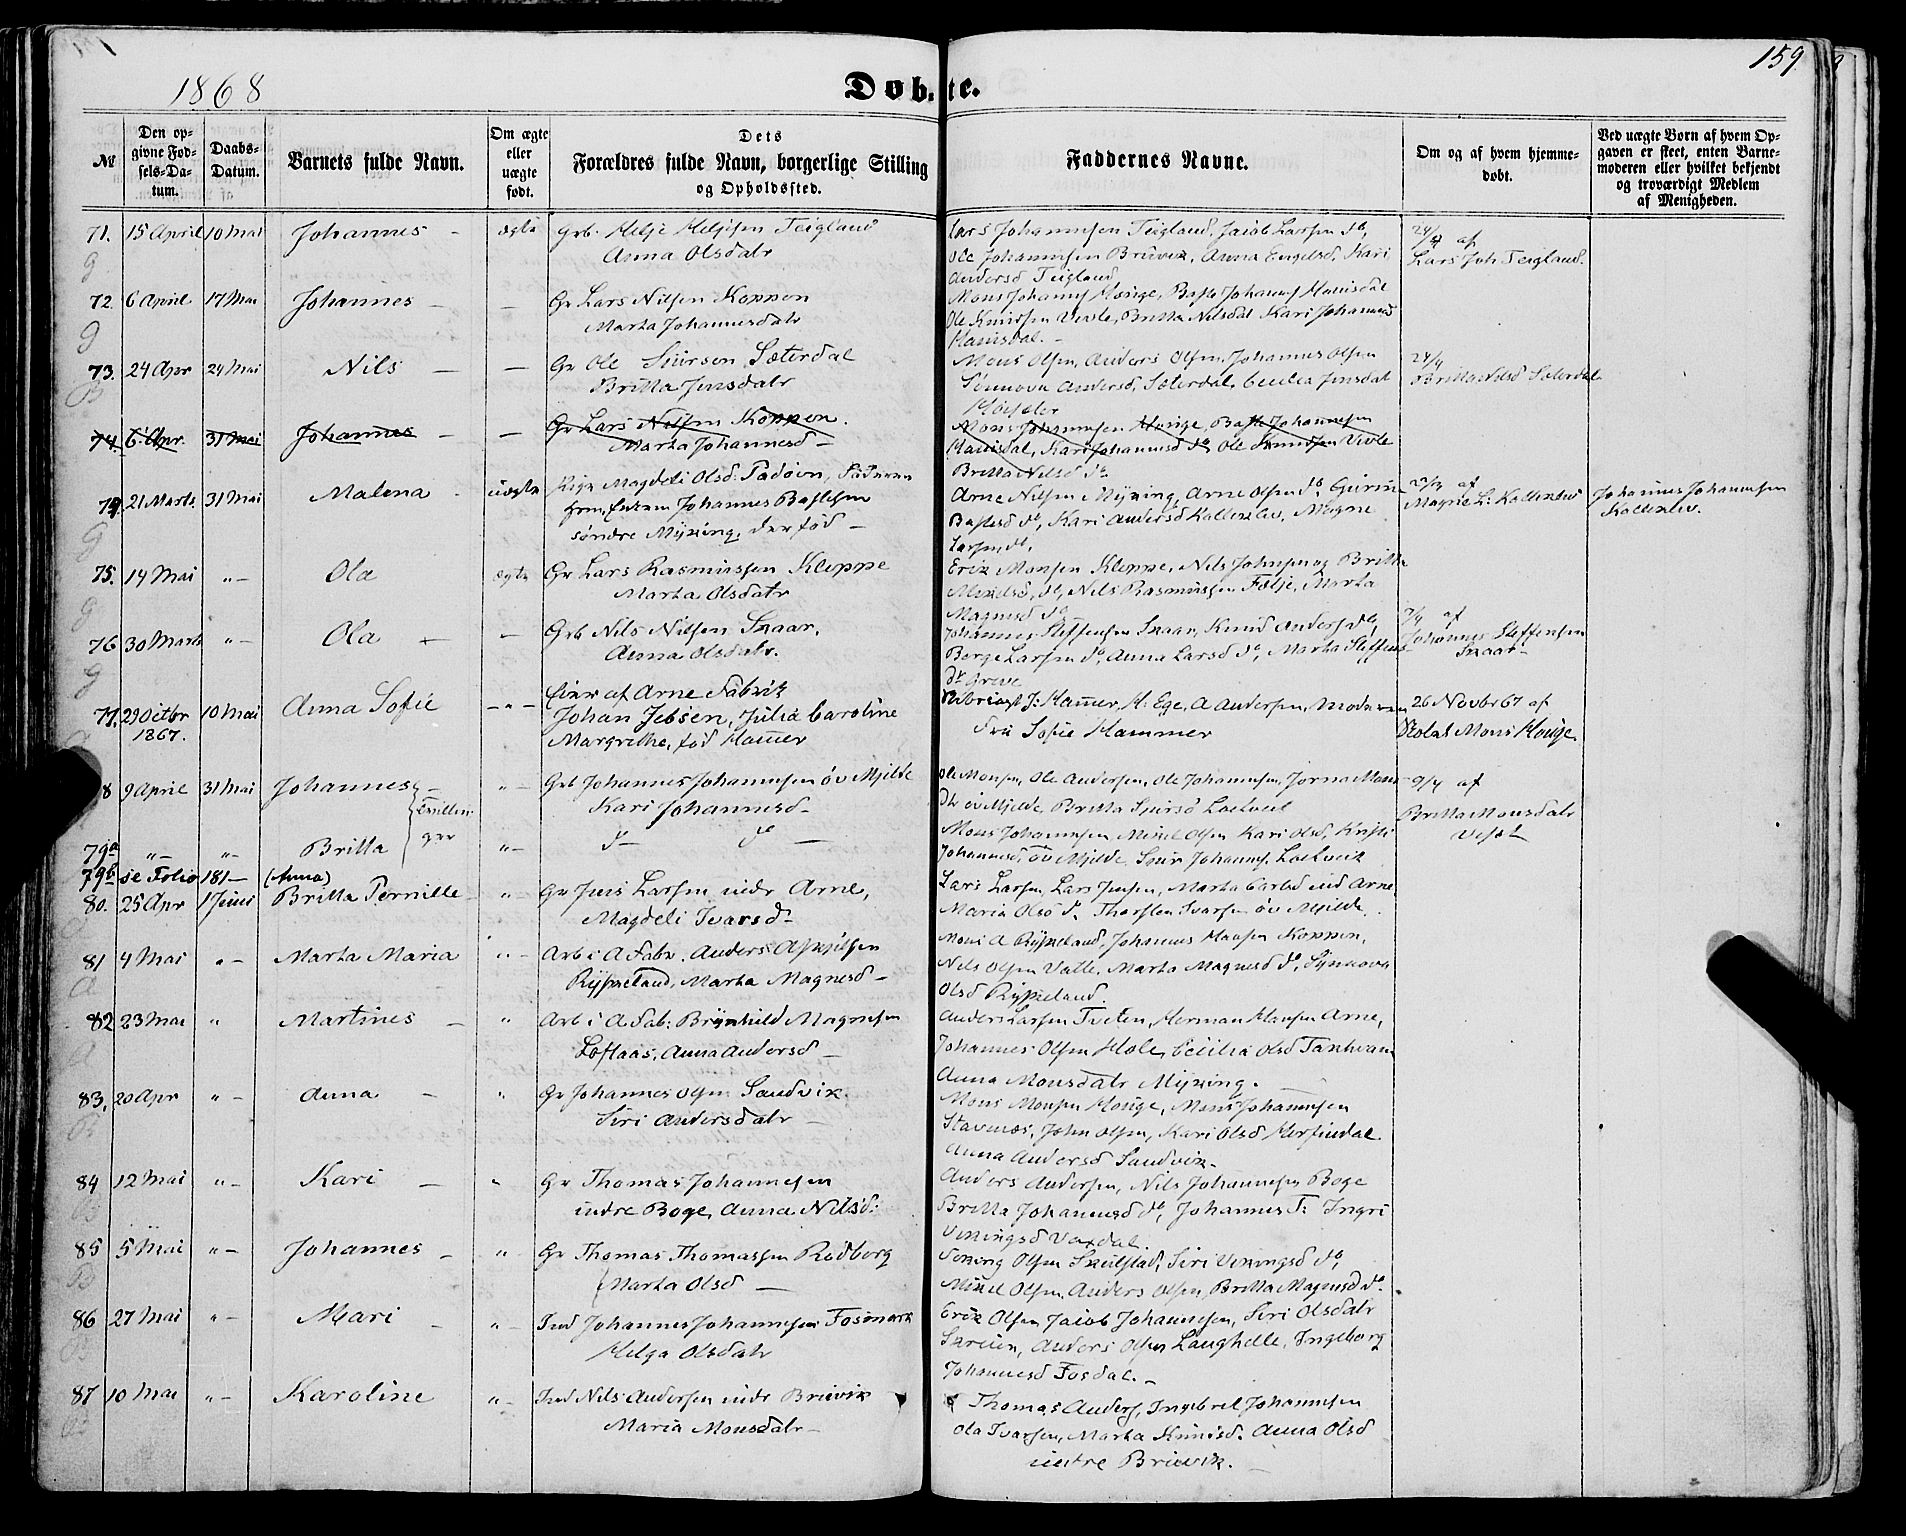 159
1868
Døb-te.
№
Den op-
givne Fød-
sels-Da-
tum.
Daabs-
Datum.
Barnets fulde Navn.
Om ægte
eller
uægte
født.
Dets
Forældres fulde Navn, borgerlige Stilling
og Opholdssted.
Faddernes Navne.
Om og af hvem hjemme-
døbt.
Ved uægte Børn af hvem Op-
gaven er skeet, enten Barne-
moderen eller hvilket bekjendt
og troværdigt Medlem
af Menigheden.
71. 15 April 10 Mai Johannes - ægte Grb. Helje Heljesen Teigland
Anna Olsdatr
Lars Johannesen Teigland, Jacob Larsen do,
Ole Johannesen Bruvik, Anna Engelsd, Kari
Andersd Teigland
24/4 af
Lars Joh Teigland.
72. 6 April 17 Mai Johannes - - Gr Lars Nilsen Koppen
Marta Johannesdatr
Mons Johannes Houge, Johannes Hanisdal
Ole Knudsen Vevle, Britta Nilsdal Kari Johannesd
Hanisdal. -
73. 24 Apr 24 Mai Nils - - Gr Ole Sjursen Sæterdal
Britta Jensdatr
Mons Olsen, Anders Olsen, Johannes Olsen
Synnova Andersd, Sæterdal, Cecilia Jensdal
24/4
Britta Nilsd Sæterdal
74. 6 Apr. 31 Mai Johannes - - Gr Lars Nilsen Koppen.
Marta Johannesd -
Mons Johannesen Houge, Johannesen
Hanisdal, Kari Johannesd do, Ole Knudsen Vevle
Britta Nilsd do
74 21 Marts. 31 Mai Malena - uægte Pige Magdeli Olsd. Tadøen,
Johannes
søndre Myking, der fød -
Arne Nilsen Myking, Arne Olsen do, Gurine
do, Kari Andersd Kalleklev, Magne
Larsen do,
23/3 af
Magne L: Kalleklev
Johannes Johannesen
Kalleklev.
75. 14 Mai " - Ola ægte Gr Lars Rasmussen Kleppe
Marta Olsdatr
Erik Monsen Kleppe, Nils Johnsen og Britha
Mikelsd, do, Nils Rasmussen Fotje, Marta
Magnesd do
76 30 Marts " - Ola - - Grb Nils Nilsen Skaar,
Anna Olsdatr.
Johannes Steffensen Skaar, Knud Anders do,
Borge Larsen do, Anna Larsd do, Marta Steffens
dr Greve
7/4 af
Johannes Steffensen
Skaar -
77. 29 Octbr 10 Mai Anna Sofie - " - Eier af Arne Fabrik
1867.
Johan Jebsen, Julia Caroline
Margrethe, fød Hamer
Fabrikant J: Hamer, H: Ege, A Andersen, Moderen
Fru Sofie Hammer
26 Novbr 67 af
Skolel Mons Houge.
8 9 April 31 Mai Johannes - " - Grb Johannes Johannesen øv Mjelde
Kari Johannesd -
Tvillin-
ger
Ole Monsen, Ole Andersen, Ole Johannesen, Jorna Mons
dtr øv Mjelde Britta Sjursd Loekveit
9/4 af
Britta Monsdatr
79a " - " - Britta " - do - do -
Mons Johannesen Mikel Olsen Kari Olsd, Kristi
Johannesd, øv Mjelde, Sjur Johannes. Loekveit
79b se Folio 181 - (Anna)
80. 25 Apr 1 Juni Britta Pernille " - Gr Jens Larsen indr Arne,
Magdeli Ivarsd -
Lars Larsen, Lars Jensen, Marta Carlsd ind Arne
Maria Olsd do Thorsten Ivarsen øv Mjelde.
81 4 Mai " - Marta Maria " - Arb i A Fabr. Anders
Rypkeland, Marta Magnesd -
Mons A Rypkeland, Johannes Hansen Koppen,
Nils Olsen Valle, Marta Magnesd do, Synnova
Olsd Rypkeland.
82 23 Mai " Martines - " Arb i A Fab: Brynhild Magnesen
Loftaas, Anna Andersd -
Anders Larsen Tveten, Herman Hansen Arne,
Johannes Olsen Hole, Cecilia Olsd
Anna Monsdatr Myking. -
83. 20 Apr " - Anna - " Gr Johannes Olsen Sandvik.
Siri Andersdatr -
Mons Monsen Houge, Mons Johannesen
Stavenæs, John Olsen, Kari Olsd Herfindal
Anna Andersd Sandvik -
84 12 Mai " - Kari - " Gr Thomas Johannesen
indre Boge, Anna Nilsd:
Anders Andersen, Nils Johannesen Boge
Britta Johannesd do, Johannes T: Ingri
Vikingsd Vaxdal.
85 5 Mai " - Johannes - " Gr Thomas Thomassen Rødberg
Marta Olsd -
Viking Olsen Skulstad, Siri Vikingsd do,
Mikel Olsen, Anders Olsen, Britta Magnesd do.
86 27 Mai " - Mari - " - Ind Johannes Johannesen Fosmark
Helga Olsdatr
Erik Olsen Jacob Johannesen, Siri Olsdatr
Skreien, Anders Olsen Langhelle, Ingeborg
Johannesd Fosdal. -
87 10 Mai " - Karoline " - Ind Nils Andersen indr Bruvik
Maria Monsdatr -
Thomas Anders, Ingebrel Johannesen
Ola Ivarsen, Marta Knudsd. Anna Olsd
indre Bruvik. -